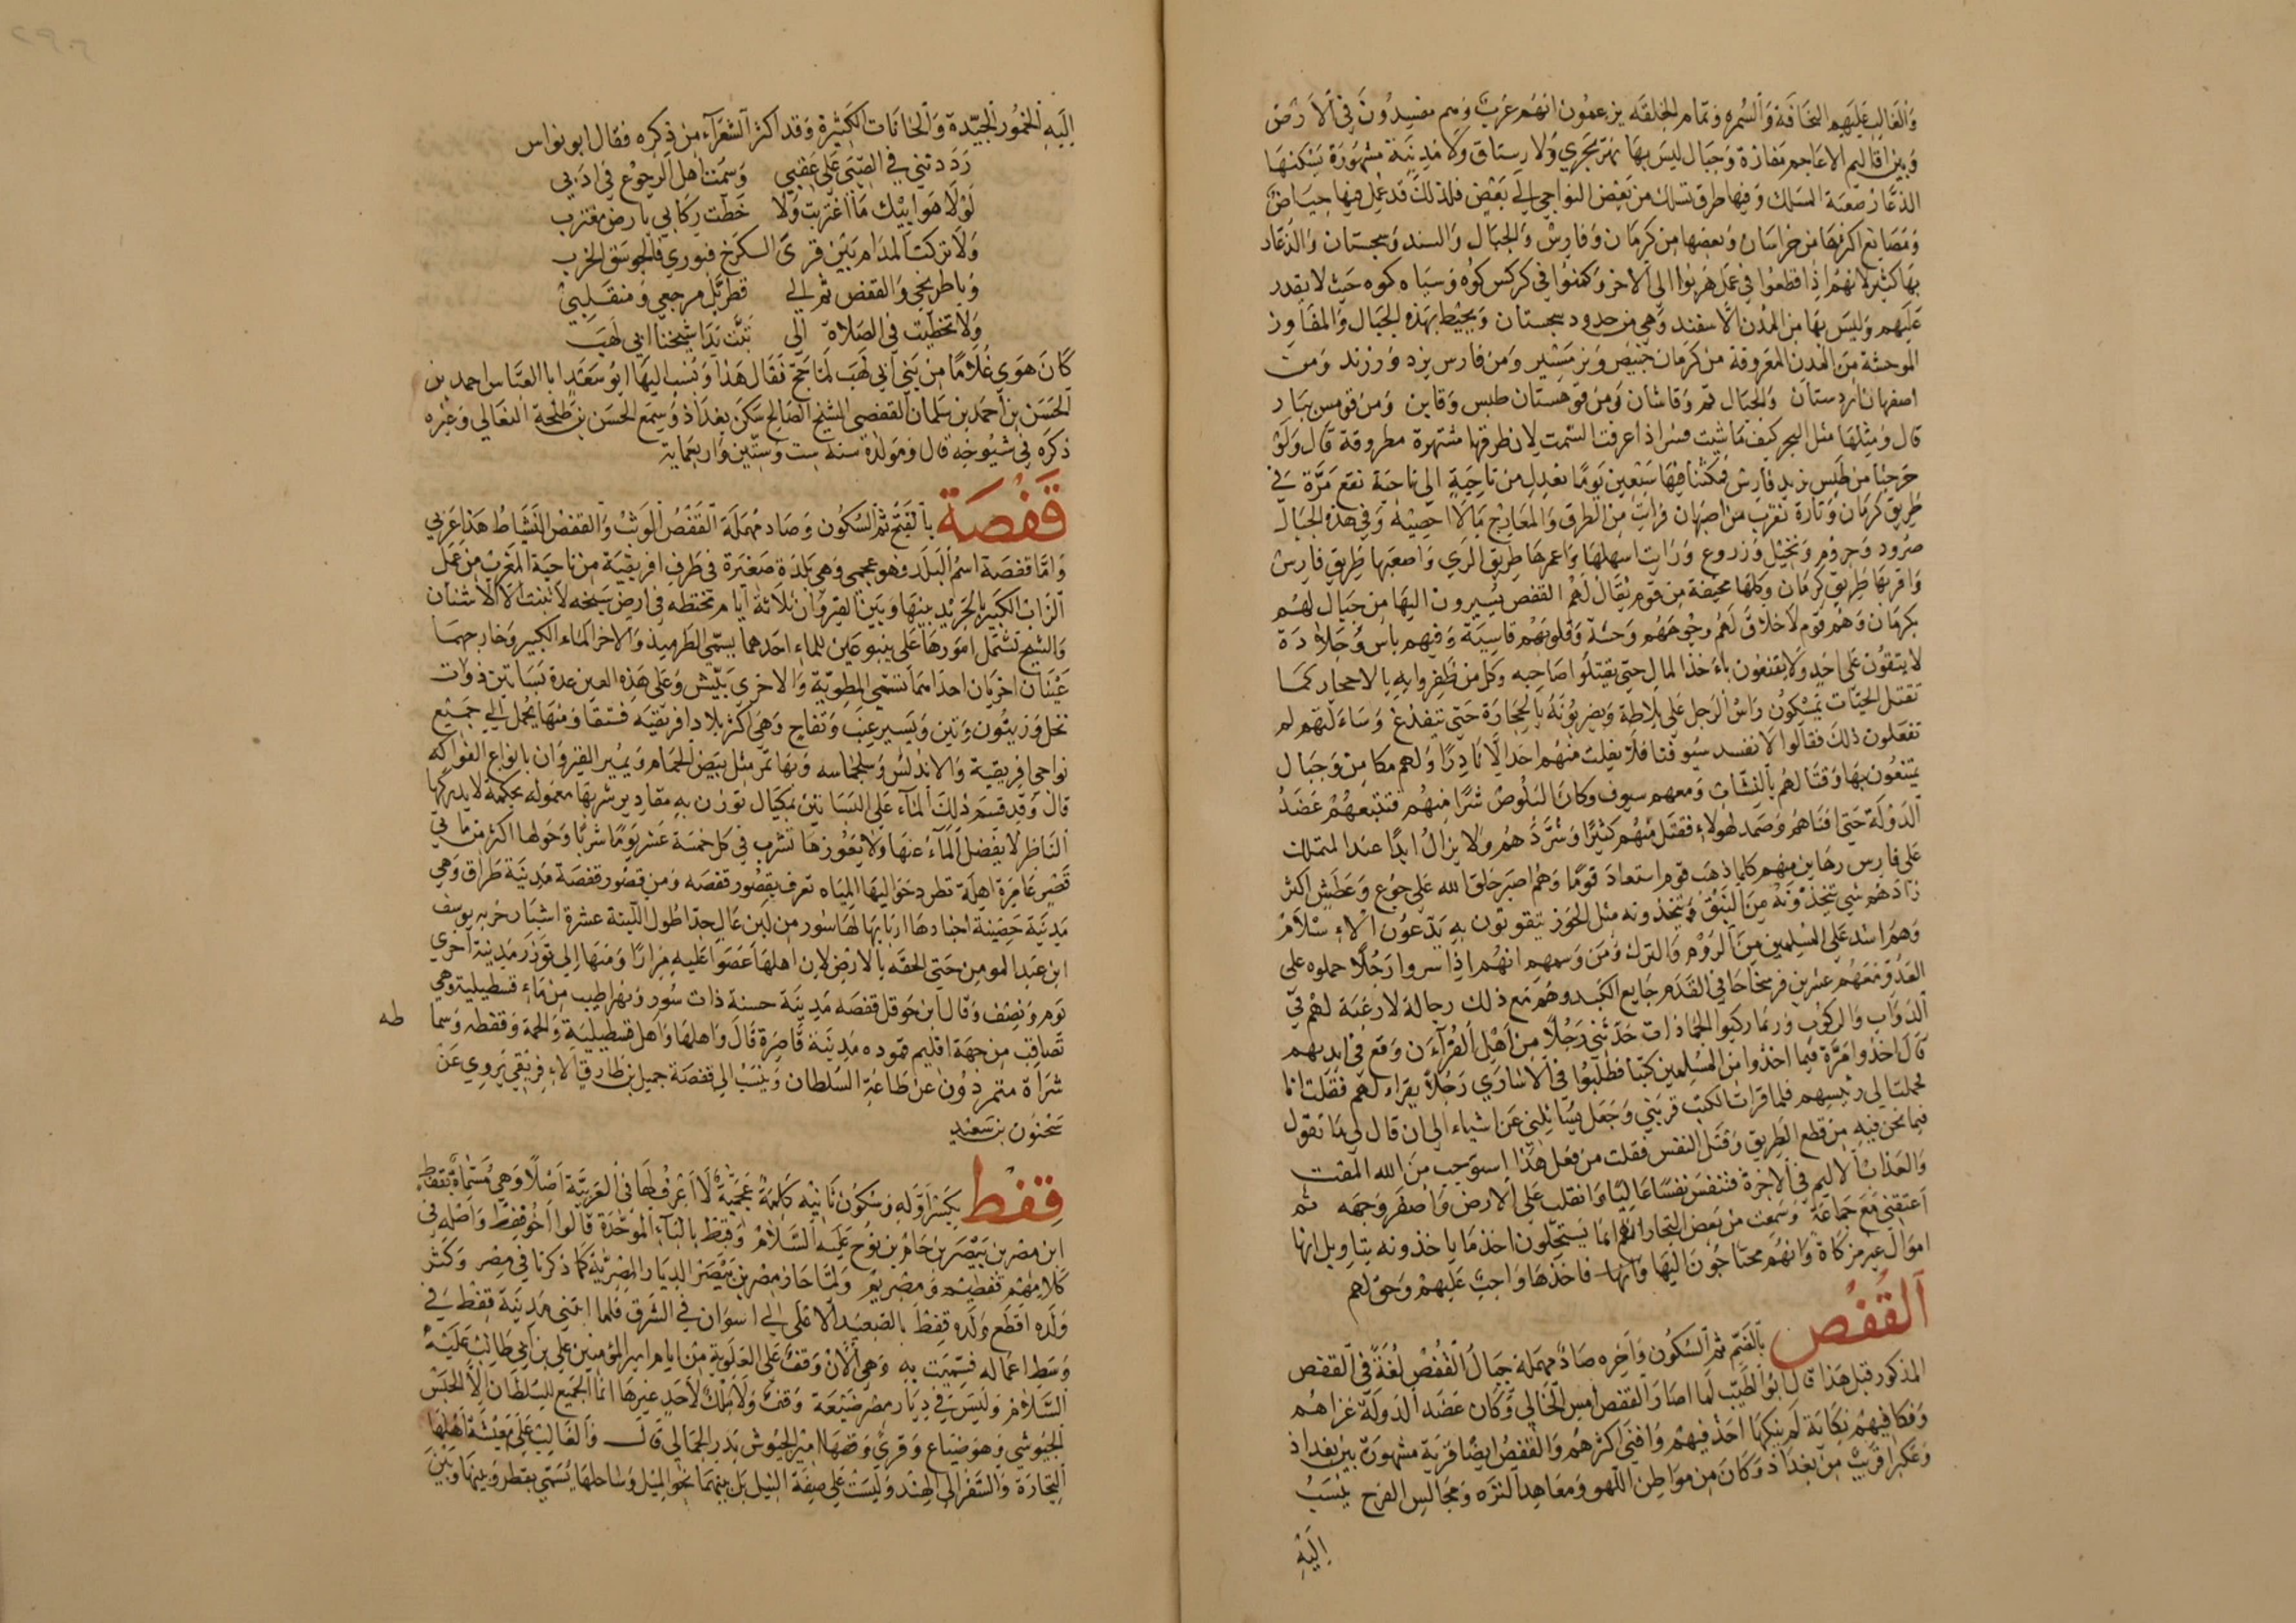 وَالغَالِب عَلَيهِم النحَافَة وَالسُمره وَتمَام الخِلقَه يزعمُون انهُم عَرَبٌ وَهم مفسِدُونَ في الأرْض
وَبين اقاليم الاعَاجم مَفازة وَجبَال ليسَ بهَا نهرَيَجري وَلا رستاق وَلا مَدِينَة مشهُورَة يَسْكنهَا
الذعَّار صَعبَة المسَلك وَفيهَا طرق تسلك من بَعض النواحِي الي بَعض فلذلك قد عُمِل فيهَا حيَاض
وَمَصَانع اكثرهَا من خراسَان وَبعضهَا من كرمَان وَفارِس وَالجبال وَالسند وَسجستان وَالذعَّار
بهَا كثير لانهُم اذا قطعُوا في عمَل هَربُوا الي الاخر وَكمنوُا في كركس كوُه وَسيَاه كوه حَيث لا يقدر
عَلَيهم وَليسَ بهَا مِن المدُن الا سفند وَهي من حدود سجستان وَيحيْط بهَذه الجبَال وَالمفَاوز
الموحشة مِنَ المُدن المعرُوفة من كرمَان خبيص وَنرمسْير وَمن فارس يزد وَزرند وَمن
اصفهان اردستَان وَالجبَال قم وَقاشان وَمن قوهستان طبس وَقاين وَمن قومس بيار
قال وَمثلهَا مثل البحر كيف مَا شيت فسرْ اذا عرفت السَّمت لان طرقهَا مشتهرة مطروقة قال وَلقَدْ
خرجنَا من طبس نريد فارس فمكثنا فيهَا سَبْعِين يَومًا نعدل مِن نَاحِيَة الي نَاحيَة نقع مَرَّة في
طريق كرمَان وَتارة نقرب من اصبهَان فرَايت مِن الطرق وَالمعَارج مَا لا احصيْه وَفي هَذه الجبَال
صرُود وَجرُوم وَنخيْل وَزروع وَرَايت اسهلهَا وَاعمرهَا طريق الري وَاصعبهَا طَريق فارس
وَاقربهَا طريق كرمَان وَكلهَا مخيفة من قوم يُقَال لهُم القفص يَسِيرون اليهَا من جبَال لهُم
بكرمَان وَهُم قوم لا خلاق لهُم وجُوههُم وَحشة وَقلوُبهُم قاسِيَة وَفيهِم باس وَجَلادَة
لا يبقوُن عَلي احَد وَلا يقنعُون باخذ المال حتي يقتلوُا صَاحبه وَكل من ظفروا به بالاحجار كمَا
تقتل الحيَّات يمْسكوُن رَاسْ الرجل عَلي بلاطة وَيضربوُنهُ بالحجَارَة حَتي تنفدغ وَسَاءلتهُم لم
تفعَلون ذلك فقالوُا لا تفسد سيُوفنا فلا يفلت منهُم احَد الا نادرًا وَلهم مكامن وَجبَال
يمتنعُون بهَا وَقتالهُم بالنشَّاب وَمعهم سيوف وكان البلوُص شرًّا منهُم فتتبعهُمْ عَضَدُ
الدَوْلة حَتي افنَاهمُ وَصمد لهَولاءِ فقتل منهُم كثيرًا وَشرَّدَهُم وَلا يزال ابدًا عند المتملك
علي فارس رهاين منهم كلما ذهَب قوم استعادَ قومًا وَهُم اصبَر خلق الله علي جُوع وَعَطشٍ اكثر
زادهُم شي يتخذوْنهُ من النبق وَيتخذونه مثل الجوز يتقوتون به يَدّعُون الاسْلَامْ
وَهمُ اشد عَلي المسلمين مِنَ الرُوْم وَالترك وَمن وَسمهم انهُم اذا اسروا رَجُلًا حملوه علي
العَدُوِّ معَهُم عشرين فرسخا حَافي القَدَم جَايع الكبد وَهُم مَع ذلك رجالة لا رغبَة لهُم في
الدوَاب وَالركوُب وَربما ركبوا الجمازات حَدَّثني رَجُلٌ مِن اهْل القُرآن وَقع في ايديهم
قالَ اخذُوا مرَّة فيما اخذوا من المسْلمين كتبًا فطلبوُا في الاسَاري رَجُلًا يقرَاء لهم فقلت انا
فحملت الي رَئيسهم فلما قرَات الكتب قربَني وَجَعَل يسَائلني عَن اشياء الي ان قال لي مَا تقول
فيما نحن فيهِ مِن قطع الطَرِيق وَقتل النفس فقلت من فعل هَذا استوجب من الله المقت
وَالعَذابْ الاليم في الآخرة فتنفس نفسًا عَاليًا وَانقلب عَلي الارض وَاصفر وَجهه ثم
اعتقني مَع جمَاعَة وَسمعت من بَعض التجار انهُم انما يَستحلّون اخذ مَا ياخذونه بتاويل انها
اموَال غير مزكَاة وَانهُم محتَاجُونَ اليها وَانها فاخذهَا وَاجب عَليهم وَحق لهم
اَلقُفْص بالضَّم ثم السُكوُن وَآخره صَادٌ مهمَلة جِبَالُ القُفْص لُغَةٌ في القفص
المذكور قبل هَذا قال ابُو الطَيّب لما اصَارَ القفص امس الخالي وَكَان عَضد الدَولَة غزاهُم
وَنكا فيهِم نكَايَة لم ينكهَا احَد فيهِم وَافني اكثرهُم وَالقفصُ ايضًا قرية مشهوَرة بين بغداذ
وَعكبرا قريبٌ مِن بغدَاد وَكان من مَوَاطِن اللّهو وَمَعَاهد النزه وَمجَالس الفرح ينسَبُ
اِليَهْ
اِليَهِ الخمُور الجيّدة وَالحانات الكثيرة وَقد اكثر الشُعَرَاء من ذِكره فقال ابو نواس
رَددتني في الصّبَي عَلي عَقِبي وَسمت اهل الرجُوع في ادَبي
لَوْلا هوَايَ بك مَا اغتربت وَلا خَطت ركَابي بارض مغترب
وَلا تركت المدَام بَين قرَي الكرخ فبوري فالجَوسَق الخرب
وَباطرنجي وَالقفص ثم الي قطربل مرجعي وَمنقَلبي
وَلا تخطيت في الصلاة الي تَبَّت يَدَا شيخنا ابي لهَب
كَان هَوي غُلَامًا مِن بَني ابي لهَب لما حَجّ فقَال هَذا وَنسب اليهَا ابُو سَعد ابا العبَّاس احمد بن
الحَسَن بن احمد بن سَلمان القفصي الشيخ الصَالح سَكن بغدَاذ وَسمع الحَسن بن طلحة النعَالي وَغيره
ذكرَه في شيُوخِه قال وَمَولده سنه ست وستين وَاربعماية
قَفْصَة بالفَتْح ثم السُكوُن وَصَاد مُهمَلة القَفْصُ الوَثبُ وَالقفص النَّشَاطُ هَذا عَربي
وَامّا قفصَة اسمُ البَلَد وَهو عجمي وَهي بَلدَة صَغيرَة في طَرفِ افريقيَة من نَاحيَة المغرب من عمل
الزاب الكبير بالجَريد بينهَا وَبَين القيروَان ثلاثة ايام مختطه في ارض سَبخه لا تنبت الا الاشنَان
وَالشيح تشتمل اسوَرهَا علي ينبوعَين للماءِ احَدهما يسمّي الطرميذ وَالاخر المَاء الكبير وَخارجهمَا
عَيْنان اخريَان احدَاهمَا تسَمّي المطويَّة وَالاخري بَيّش وَعَلي هَذه العين عدة بَسَاتين ذوات
نخل وَزيتُون وَتين وَيَسير عِنَب وَتفَاح وَهي اكثر بلاد افريقيَه فستقَا وَمنهَا يحمل الي جَميْع
نواحي افريقية وَالاندلسُ وَسلجماسه وَبهَا تمر مثل بَيض الحمَام وَتمير القيروَان بانواع الفواكه
قال وَقد قسم ذلكَ الماء عَلي البَسَاتين بمكيَال توزن به مقادير شربهَا معموله بحكمة لا يدركُهَا
النَاظرُ لا يَفضل المَاءُ عَنهَا وَلا يعوزهَا تشرب في كل خمسَة عَشر يَومًا شربًا وَحَولها اكثر من مَايتي
قَصْر عَامرة اهلة تطرد حَوَاليهَا الميَاه تعرف بقصُور قفصه وَمن قصُور قفصَة مَدِينة طراق وَهي
مَدِينَة حَصِينَة اجنادهَا اربَابهَا لهَا سور مِن لَبن عَال جدّا طول اللبنة عشرة اشبَار خربه يوسف
ابن عَبد المومن حَتي الحقه بالارض لان اهلهَا عَصَوا عَليه مرَارًا وَمنهَا الي توزر مَدينة اخري
يَوم وَنصْف وَقال ابن حَوقل قفصَه مَدينَة حسنة ذات سُور وَنهر اطيب مِن مَاءِ قسطيلية وهي
تصَاقب مِن جهَة اقليم قموده مَدِينَة قاصرَة قالَ وَاهلهَا وَاهل قسطِيليَة وَالحمة وَنفطه وَسما طه
شرَاة متمردُون عَن طَاعَةِ السُلطان وَينسَبْ الي قفصَة جميل بن طارق الافرِيقي يَروي عَنْ
سَحْنُون بن سَعْيد
قِفْط بكَسْر اوَّله وَسُكوُن ثانيه كَلمَةٌ عجميةٌ لا اعْرفُ لهَا في العَربيَّة اَصْلًا وَهي مُسَمَاةٌ بقفط
ابن مصر بن بَيْصَر بن حَام بن نوُح عَليه السَّلامُ وَقبط بالبَاء الموَحّدَة قالوُا اخُو قفط وَاصْله في
كلامهُم قفطيْم وَمصريم وَلمَّا حَاز مصر بن بَيصر الديَار المصْريّة كمَا ذكرنا في مصر وَكثر
وَلده اقطع وَلده قفط بالصَعيْد الاعلي الي اسوَان في الشرق فلما ابتني مَدِينة قفط في
وَسَط اعمَاله فسمّيت به وَهي الانْ وَقف علي العَلويَّة من ايام امير المؤمنين علي بن ابي طالب عَليْهُ
السَّلامُ وَليسَ في ديَار مصر ضَيعَة وَقف وَلا ملك لاحَد غيرهَا انما الجميع للسُلطان الا الحبَسْ
الجيُوشي وَهوَ ضيَاع وَقري وَقفهَا امير الجيوُش بَدر الجمَالي قالَ وَالغَالب عَلي مَعِيشَة اهلهَا
التِجَارَة وَالسَفر الي الهند وَليست علي ضفة النيل بَل بينهمَا نحو الميْل وَسَاحلهَا يُسَمّي بقطر وَبينهَا وَبَيْنَ